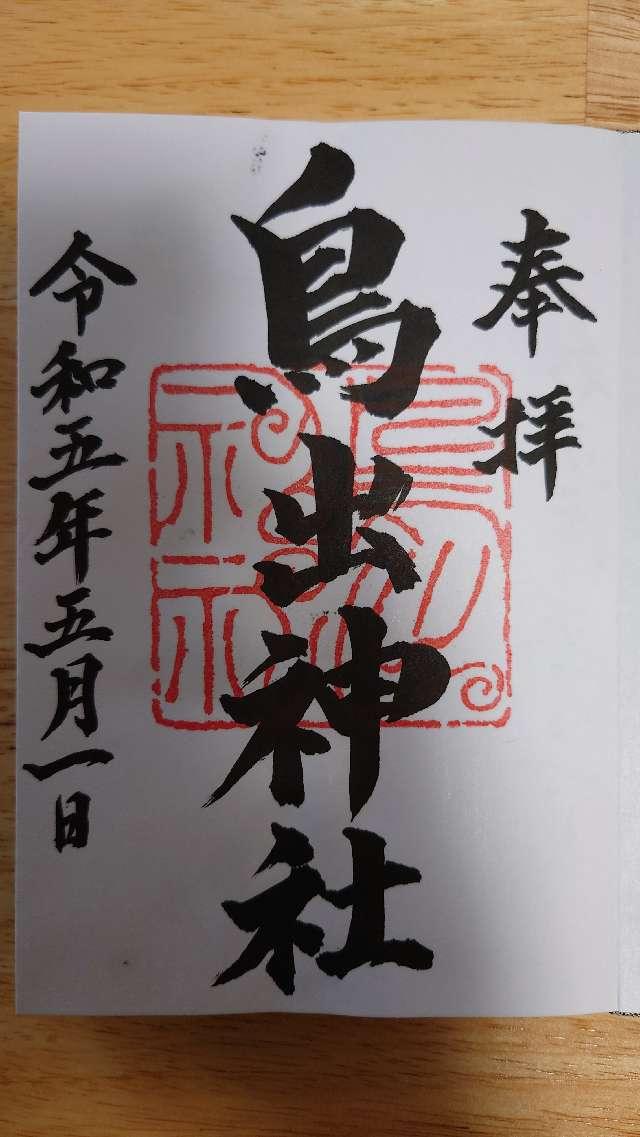 奉拝
鳥出神社
令和五年五月一日